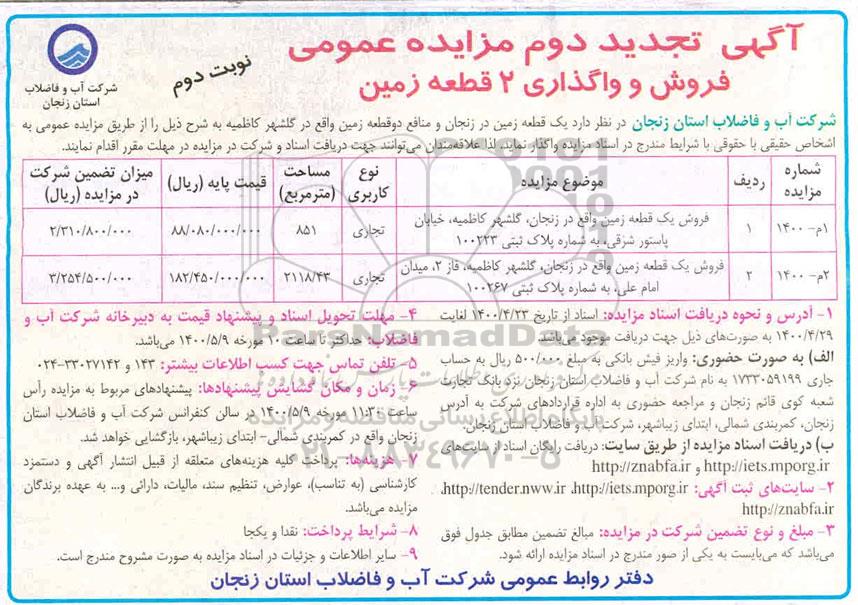 آگهی تجدید دوم مزایده عمومی
فروش و واگذاری ۲ قطعه زمین
نوبت دوم
شرکت آب و فاضلاب
استان زنجان
شرکت آب و فاضلاب استان زنجان در نظر دارد یک قطعه زمین در زنجان و منافع دوقطعه زمین واقع در گلشهر کاظمیه به شرح ذیل را از طریق مزایده عمومی به
اشخاص حقیقی یا حقوقی با شرایط مندرج در اسناد مزایده واگذار نماید. لذا علاقه‌مندان می‌توانند جهت دریافت اسناد و شرکت در مزایده در مهلت مقرر اقدام نمایند.
شماره مزایده | ردیف | موضوع مزایده | نوع کاربری | مساحت (مترمربع) | قیمت پایه (ریال) | میزان تضمین شرکت در مزایده (ریال)
۱م- ۱۴۰۰ | ۱ | فروش یک قطعه زمین واقع در زنجان، گلشهر کاظمیه، خیابان پاستور شرقی، به شماره پلاک ثبتی ۱۰۰۲۲۳ | تجاری | ۸۵۱ | ۸۸/۰۸۰/۰۰۰/۰۰۰ | ۲/۳۱۰/۸۰۰/۰۰۰
۲م- ۱۴۰۰ | ۲ | فروش یک قطعه زمین واقع در زنجان، گلشهر کاظمیه، فاز ۲، میدان امام علی، به شماره پلاک ثبتی ۱۰۰۲۶۷ | تجاری | ۲۱۱۸/۴۳ | ۱۸۲/۴۵۰/۰۰۰/۰۰۰ | ۳/۲۵۴/۵۰۰/۰۰۰
۱- آدرس و نحوه دریافت اسناد مزایده: اسناد از تاریخ ۱۴۰۰/۴/۲۳ لغایت
۱۴۰۰/۴/۲۹ به صورت‌های ذیل جهت دریافت موجود می‌باشد.
الف) به صورت حضوری: واریز فیش بانکی به مبلغ ۵۰۰/۰۰۰ ریال به حساب
جاری ۱۷۳۳۰۵۹۱۹۹ به نام شرکت آب و فاضلاب استان زنجان نزد بانک تجارت
شعبه کوی قائم زنجان و مراجعه حضوری به اداره قراردادهای شرکت به آدرس
زنجان، کمربندی شمالی، ابتدای زیباشهر، شرکت آب و فاضلاب استان زنجان.
ب) دریافت اسناد مزایده از طریق سایت: دریافت رایگان اسناد از سایت‌های
http://iets.mporg.ir و http://znabfa.ir
۲- سایت‌های ثبت آگهی: http://iets.mporg.ir ،http://tender.nww.ir،
http://znabfa.ir
۳- مبلغ و نوع تضمین شرکت در مزایده: مبالغ تضمین مطابق جدول فوق
می‌باشد که می‌بایست به یکی از صور مندرج در اسناد مزایده ارائه شود.
۴- مهلت تحویل اسناد و پیشنهاد قیمت به دبیرخانه شرکت آب و
فاضلاب: حداکثر تا ساعت ۱۰ مورخه ۱۴۰۰/۵/۹ می‌باشد.
۵- تلفن تماس جهت کسب اطلاعات بیشتر: ۱۴۳ و ۳۳۰۲۷۱۴۲-۰۲۴
۶- زمان و مکان گشایش پیشنهادها: پیشنهادهای مربوط به مزایده رأس
ساعت ۱۱:۳۰ مورخه ۱۴۰۰/۵/۹ در سالن کنفرانس شرکت آب و فاضلاب استان
زنجان واقع در کمربندی شمالی- ابتدای زیباشهر، بازگشایی خواهد شد.
۷- هزینه‌ها: پرداخت کلیه هزینه‌های متعلقه از قبیل انتشار آگهی و دستمزد
کارشناسی (به تناسب)، عوارض، تنظیم سند، مالیات، دارائی و... به عهده برندگان
مزایده می‌باشد.
۸- شرایط پرداخت: نقدا و یکجا
۹- سایر اطلاعات و جزئیات در اسناد مزایده به صورت مشروح مندرج است.
دفتر روابط عمومی شرکت آب و فاضلاب استان زنجان
ParsNamadData
پایگاه اطلاع رسانی مناقصه و مزایده
۰۲۱-۸۸۳۴۹۶۷۰-۵